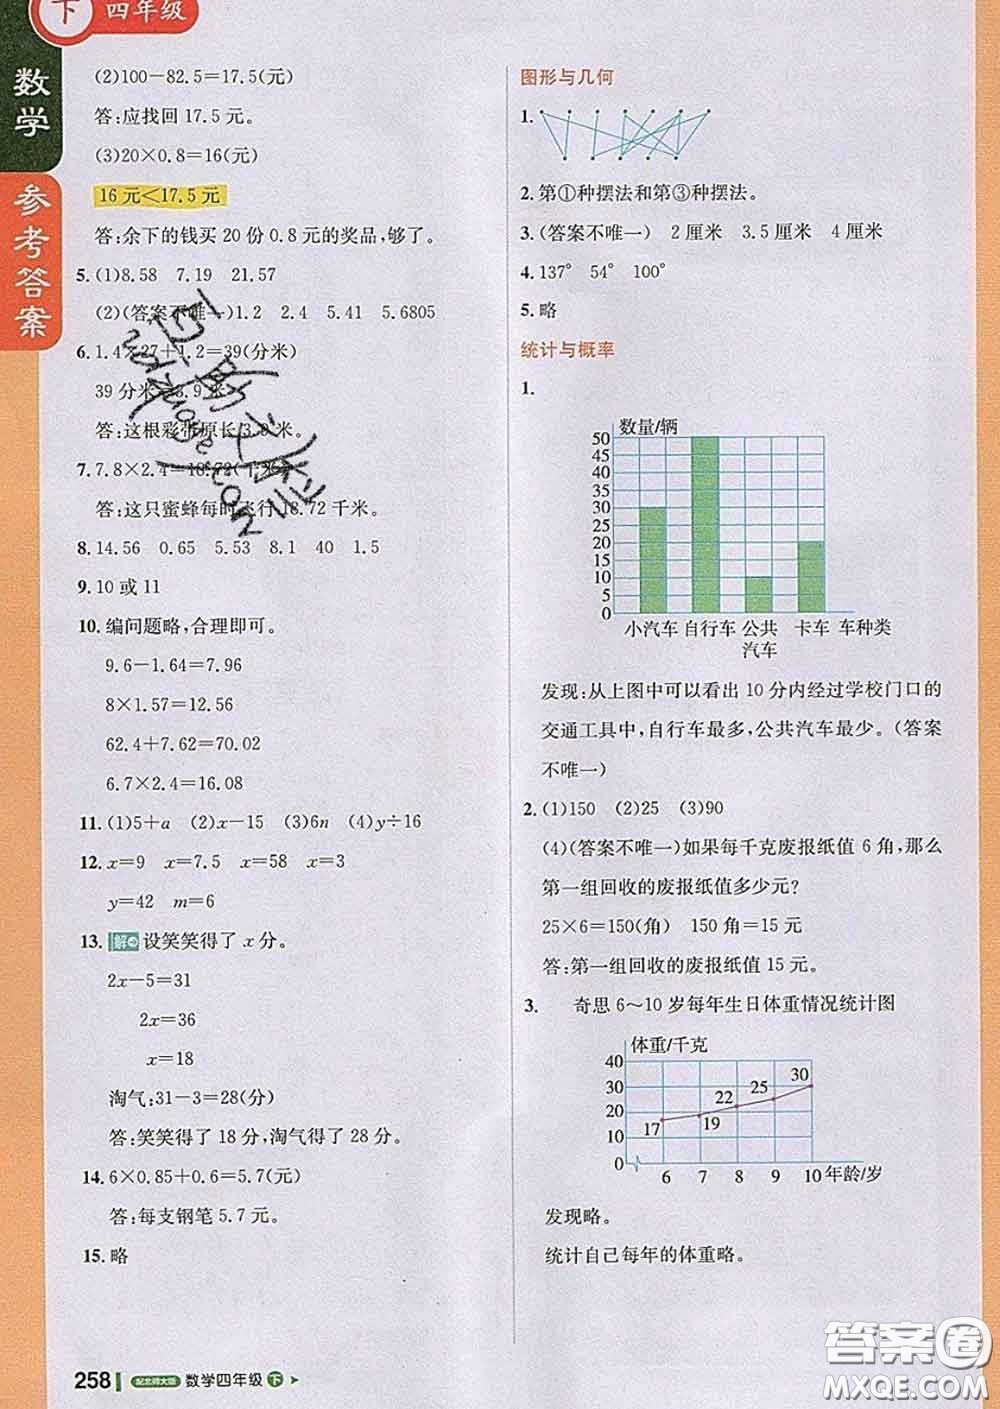 下 四年级
数学
参考答案
(2)100－82.5＝17.5(元)
答:应找回 17.5 元。
(3)20×0.8＝16(元)
16 元＜17.5 元
答:余下的钱买 20 份 0.8 元的奖品,够了。
5. (1)8.58 7.19 21.57
(2)(答案不唯一)1.2 2.4 5.41 5.6805
6. 1.4×27＋1.2＝39(分米)
39 分米＝3.9 米
答:这根彩带原长 3.9 米。
7. 7.8×2.4＝18.72(千米)
答:这只蜜蜂每时飞行 18.72 千米。
8. 14.56 0.65 5.53 8.1 40 1.5
9. 10 或 11
10. 编问题略,合理即可。
9.6－1.64＝7.96
8×1.57＝12.56
62.4＋7.62＝70.02
6.7×2.4＝16.08
11. (1)5＋a (2)x－15 (3)6n (4)y÷16
12. x＝9 x＝7.5 x＝258 x＝3
y＝42 m＝6
13. 解 设笑笑得了 x 分。
2x－5＝31
2x＝36
x＝18
淘气:31－3＝28(分)
答:笑笑得了 18 分,淘气得了 28 分。
14. 6×0.85＋0.6＝5.7(元)
答:每支钢笔 5.7 元。
15. 略
258 配北师大版 数学四年级 下
图形与几何
1.
2. 第①种摆法和第③种摆法。
3. (答案不唯一) 2 厘米 3.5 厘米 4 厘米
4. 137° 54° 100°
5. 略
统计与概率
1.
数量/辆
50
45
40
35
30
25
20
15
10
5
0
小汽车 自行车 公共汽车 卡车 车种类
发现:从上图中可以看出 10 分内经过学校门口的
交通工具中,自行车最多,公共汽车最少。(答案
不唯一)
2. (1)150 (2)25 (3)90
(4)(答案不唯一)如果每千克废报纸值 6 角,那么
第一组回收的废报纸值多少元?
25×6＝150(角) 150 角＝15 元
答:第一组回收的废报纸值 15 元。
3. 奇思 6～10 岁每年生日体重情况统计图
体重/千克
40
30
20
10
0
17 19 22 25 30
6 7 8 9 10 年龄/岁
发现略。
统计自己每年的体重略。
答案圈
MXQE.COM